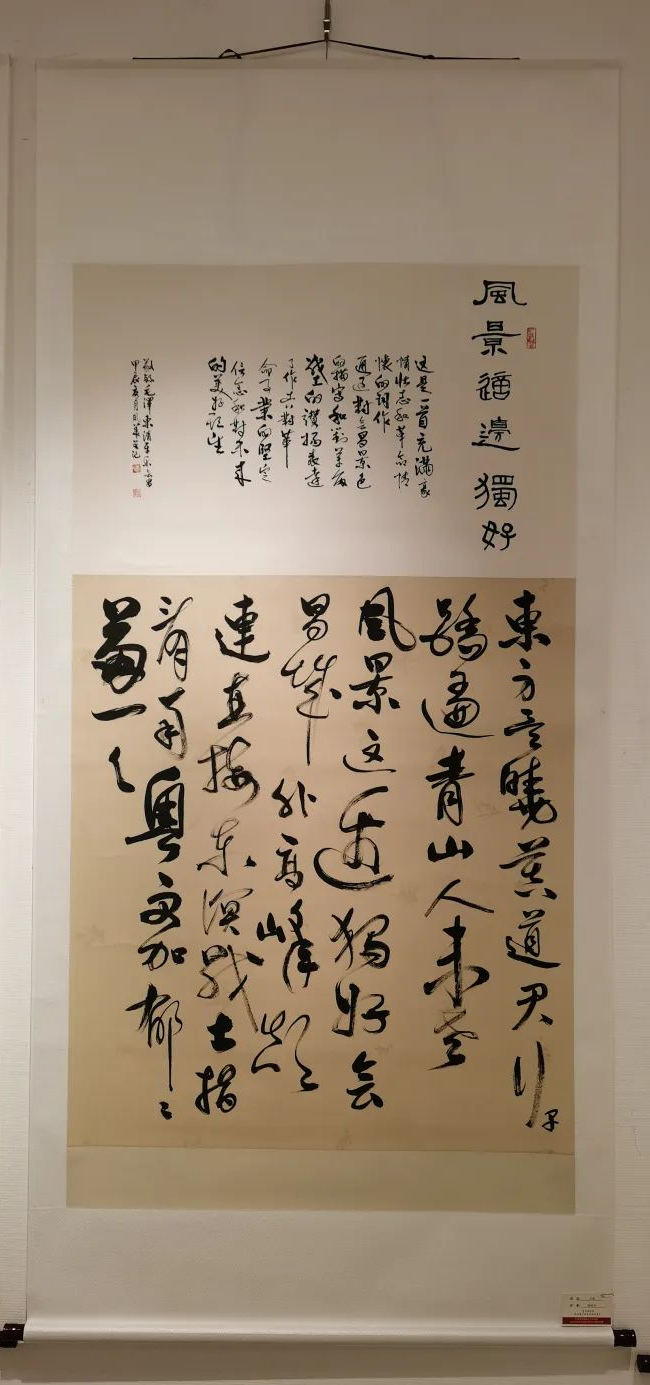 風景這邊獨好
这是一首充滿豪
情壮志和革命情
懷的詞作
通過對会昌景色
的描写和對革命
戰士的讚揚表達
了作者對革
命事業的堅定
信念和對未来
的美好
敬録毛澤東清平乐会昌
甲辰夏月
東方欲曉莫道君行早
踏遍青山人未老
風景这邊独好会
昌城外高峰顛
連直接东溟战士指
看南粵更加郁々
葱々